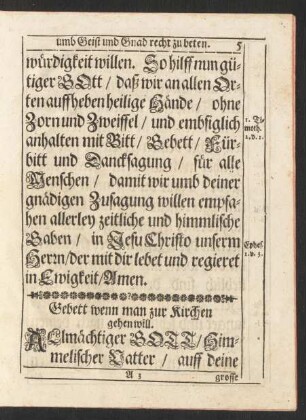 umb Geist und Gnad recht zu beten. 5
würdigkeit willen. So hilff nun gü-
tiger GOtt / daß wir an allen Or-
ten auffheben heilige Hände / ohne
Zorn und Zweiffel / und embsiglich
anhalten mit Bitt / Gebett / Für-
bitt und Dancksagung / für alle
Menschen / damit wir umb deiner
gnädigen Zusagung willen empfa-
hen allerley zeitliche und himmlische
Gaben / in JEsu Christo unserm
Herrn / der mit dir lebet und regieret
in Ewigkeit / Amen.
1. Ti-
moth.
2. v. 1.
Ephes.
1. v. 3.
Gebett wenn man zur Kirchen
gehen will.
ALlmächtiger GOTT / Him-
melischer Vatter / auff deine
A 3 grosse